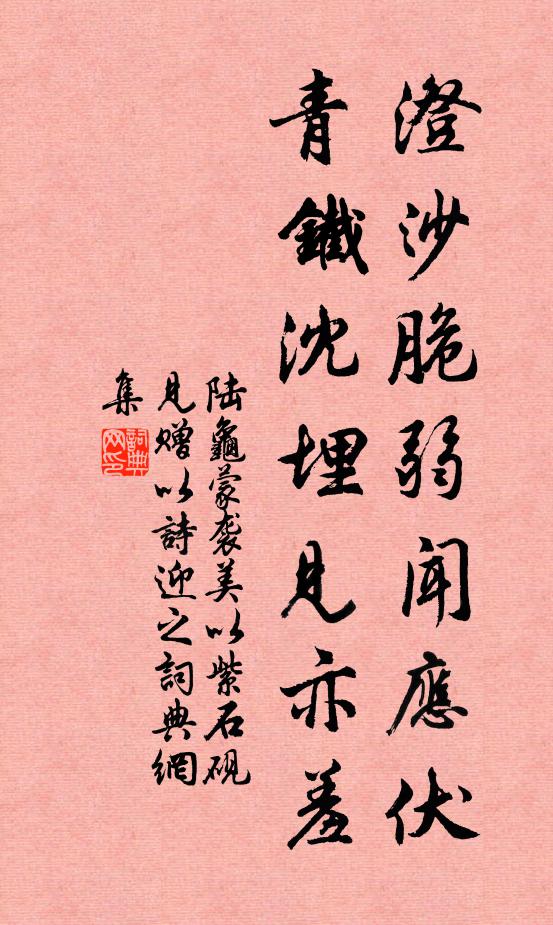 澄沙脆弱聞應伏
青鐵沈埋見亦羞
陆龜蒙袭美以紫石硯
見贈以詩迎之詞典網
集
詞典
网印